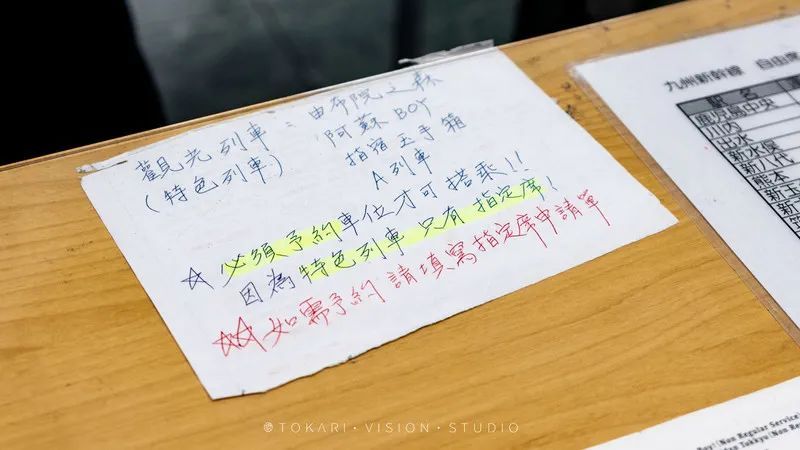 觀光列車：由布院之森
(特色列車) 阿蘇BOY
指宿玉手箱
A列車
☆ 必須予約車位才可搭乘!!
因為特色列車只有指定席!
☆☆ 如需予約請填寫指定席申請單
九州新幹線 自由席
駅名
鹿児島中央
川内
出水
新水俣
新八代
熊本
新玉
Boy!(Non Regular Service)
©TOKARI·VISION·STUDIO